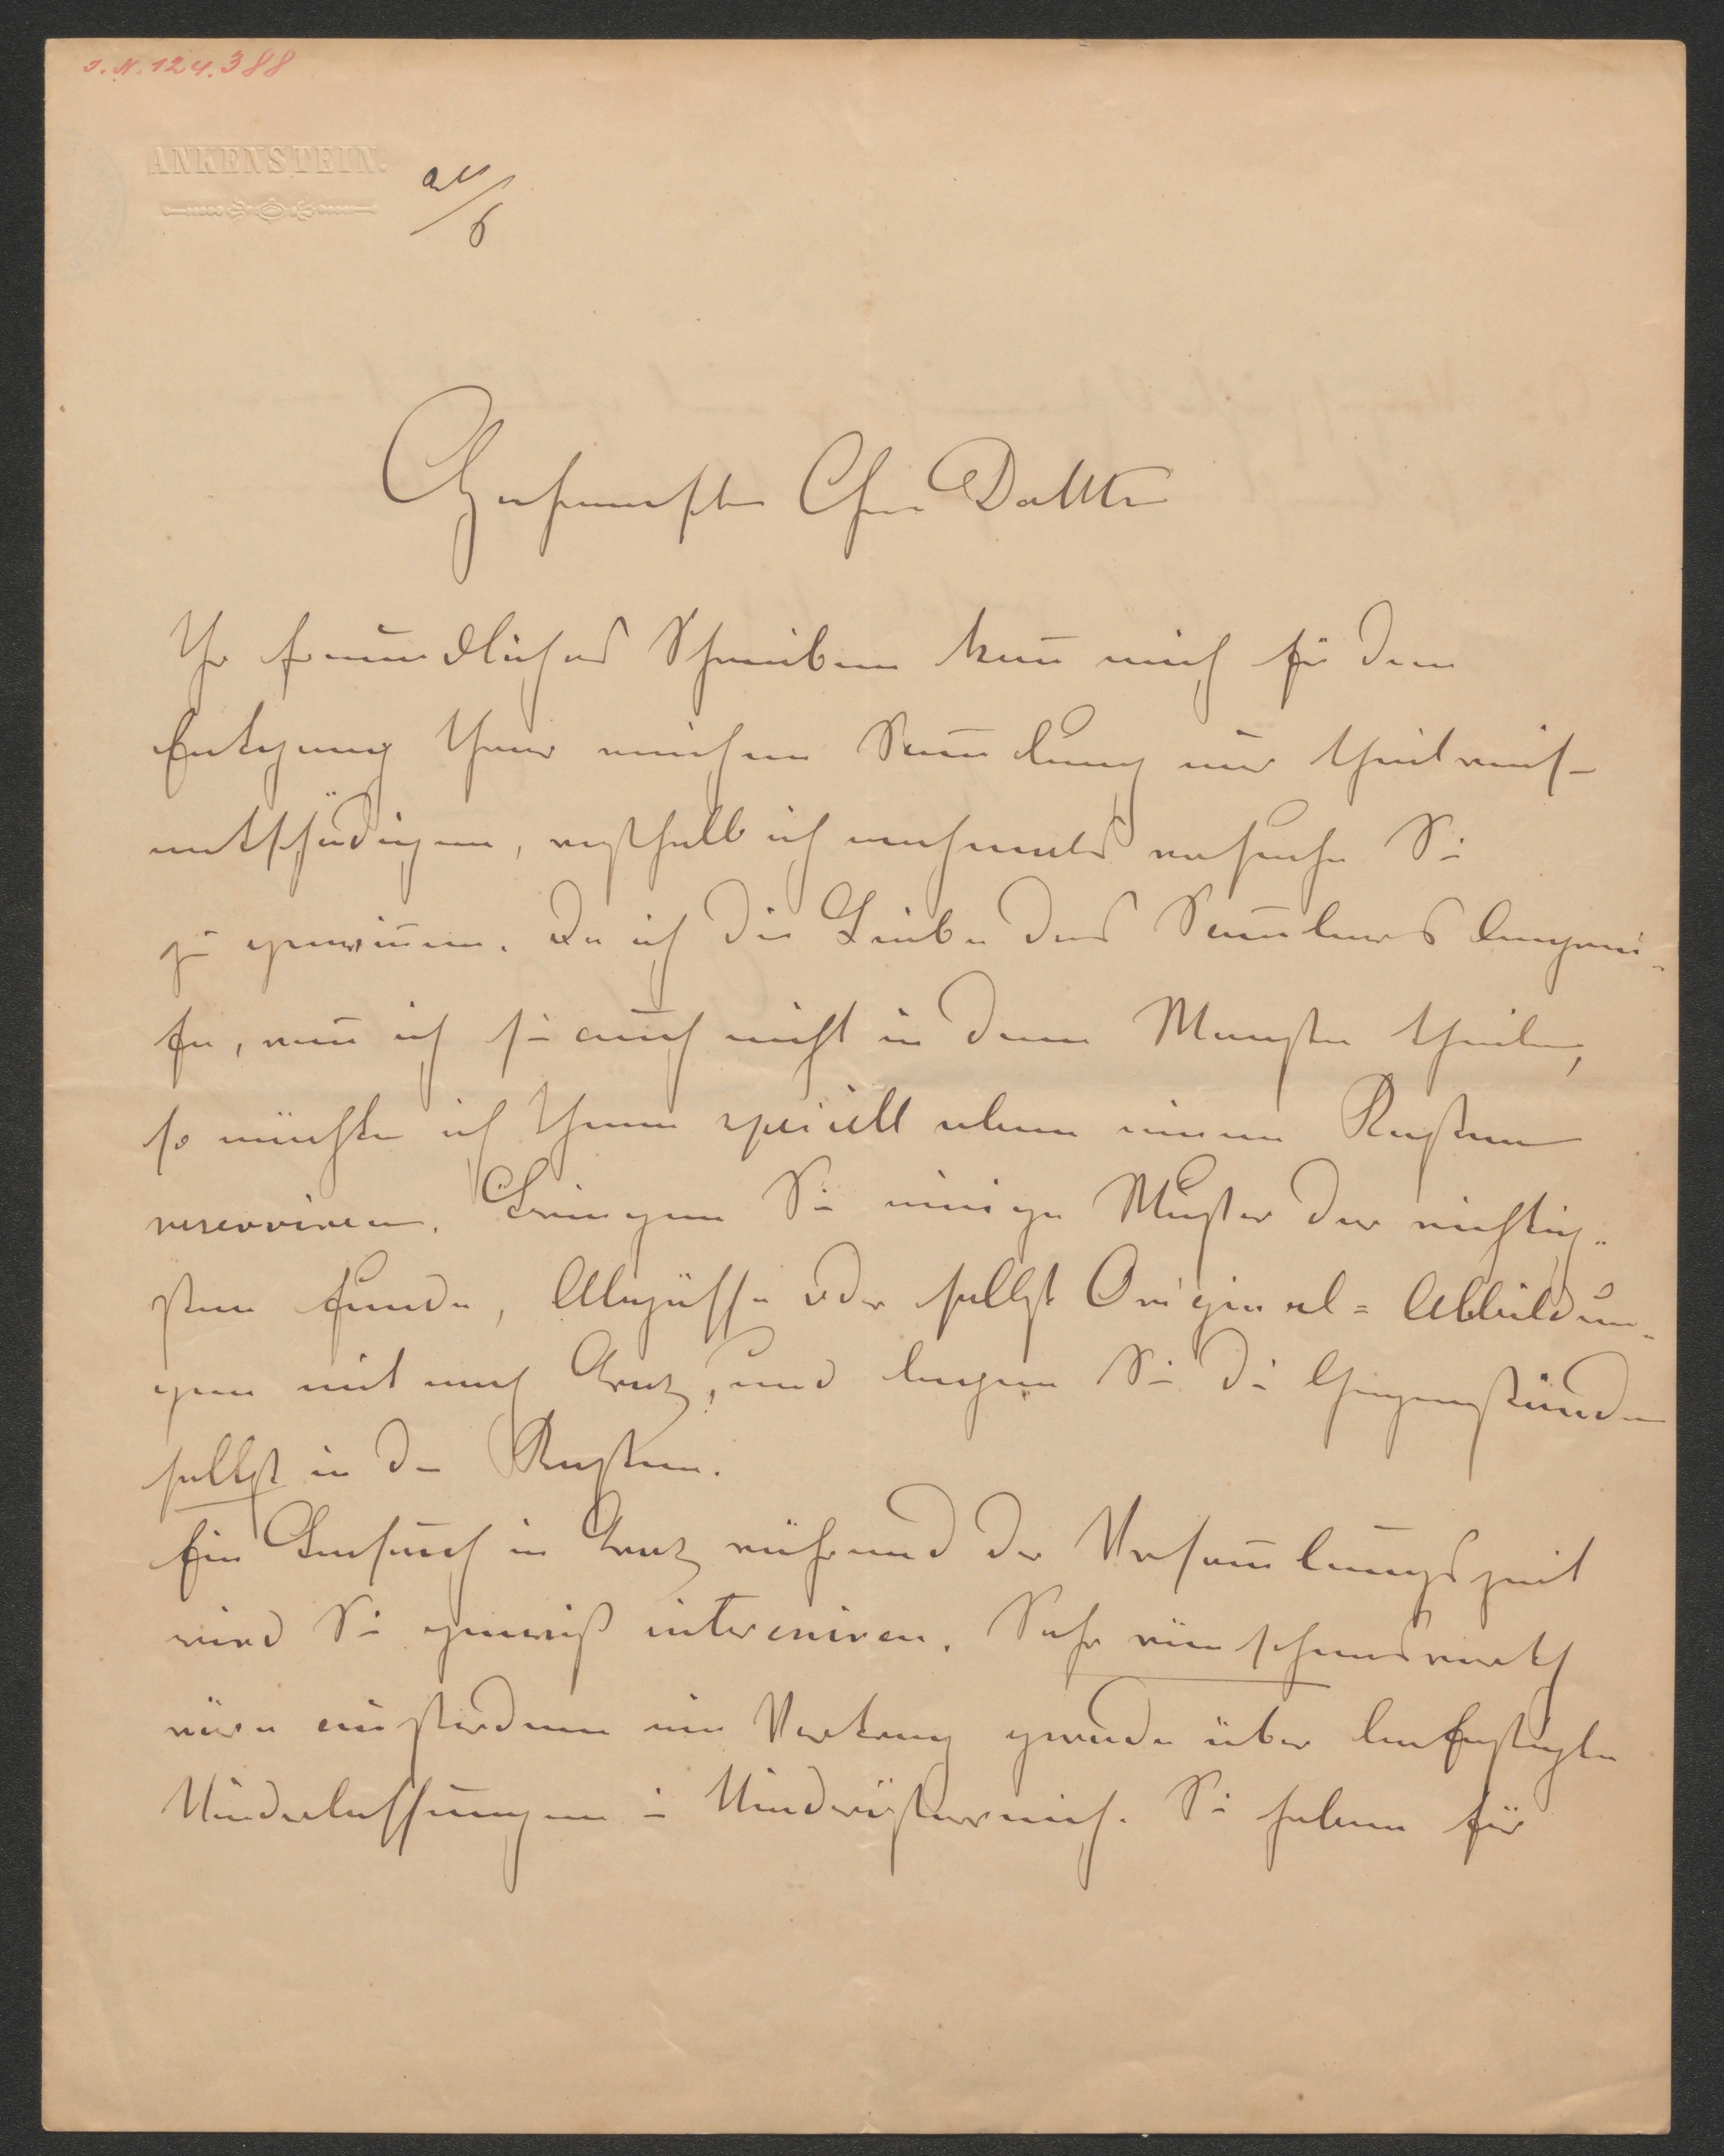 J. N. 124.388
ANKENSTEIN.
20/6
Hochverehrter Herr Doktor
Ihr freundliches Schreiben kann̄ mich für den
Entgang Ihrer reichen Sam̄lung nur theilweis
entschädigen, weßhalb ich nochmals versuche Sie
zu gewin̄en. Da ich die Liebe des Sam̄lers begrei-
fe, wen̄ ich sie auch nicht in dem Maaße theile,
so möchte ich Ihnen speciell eben einen Kasten
reserviren. Bringen Sie einige Muster der wichtig-
sten Funde, Abgüsse oder selbst Original-Abbildun-
gen mit nach Graz, und legen Sie die Gegenstände
selbst in den Kasten.
Ein Besuch in Graz während der Versam̄lungszeit
wird Sie gewiß interessiren. Sehr wünschenswerth
wäre außerdem ein Vortrag gerade über befestigte
Niederlassungen in Niederösterreich. Sie haben für